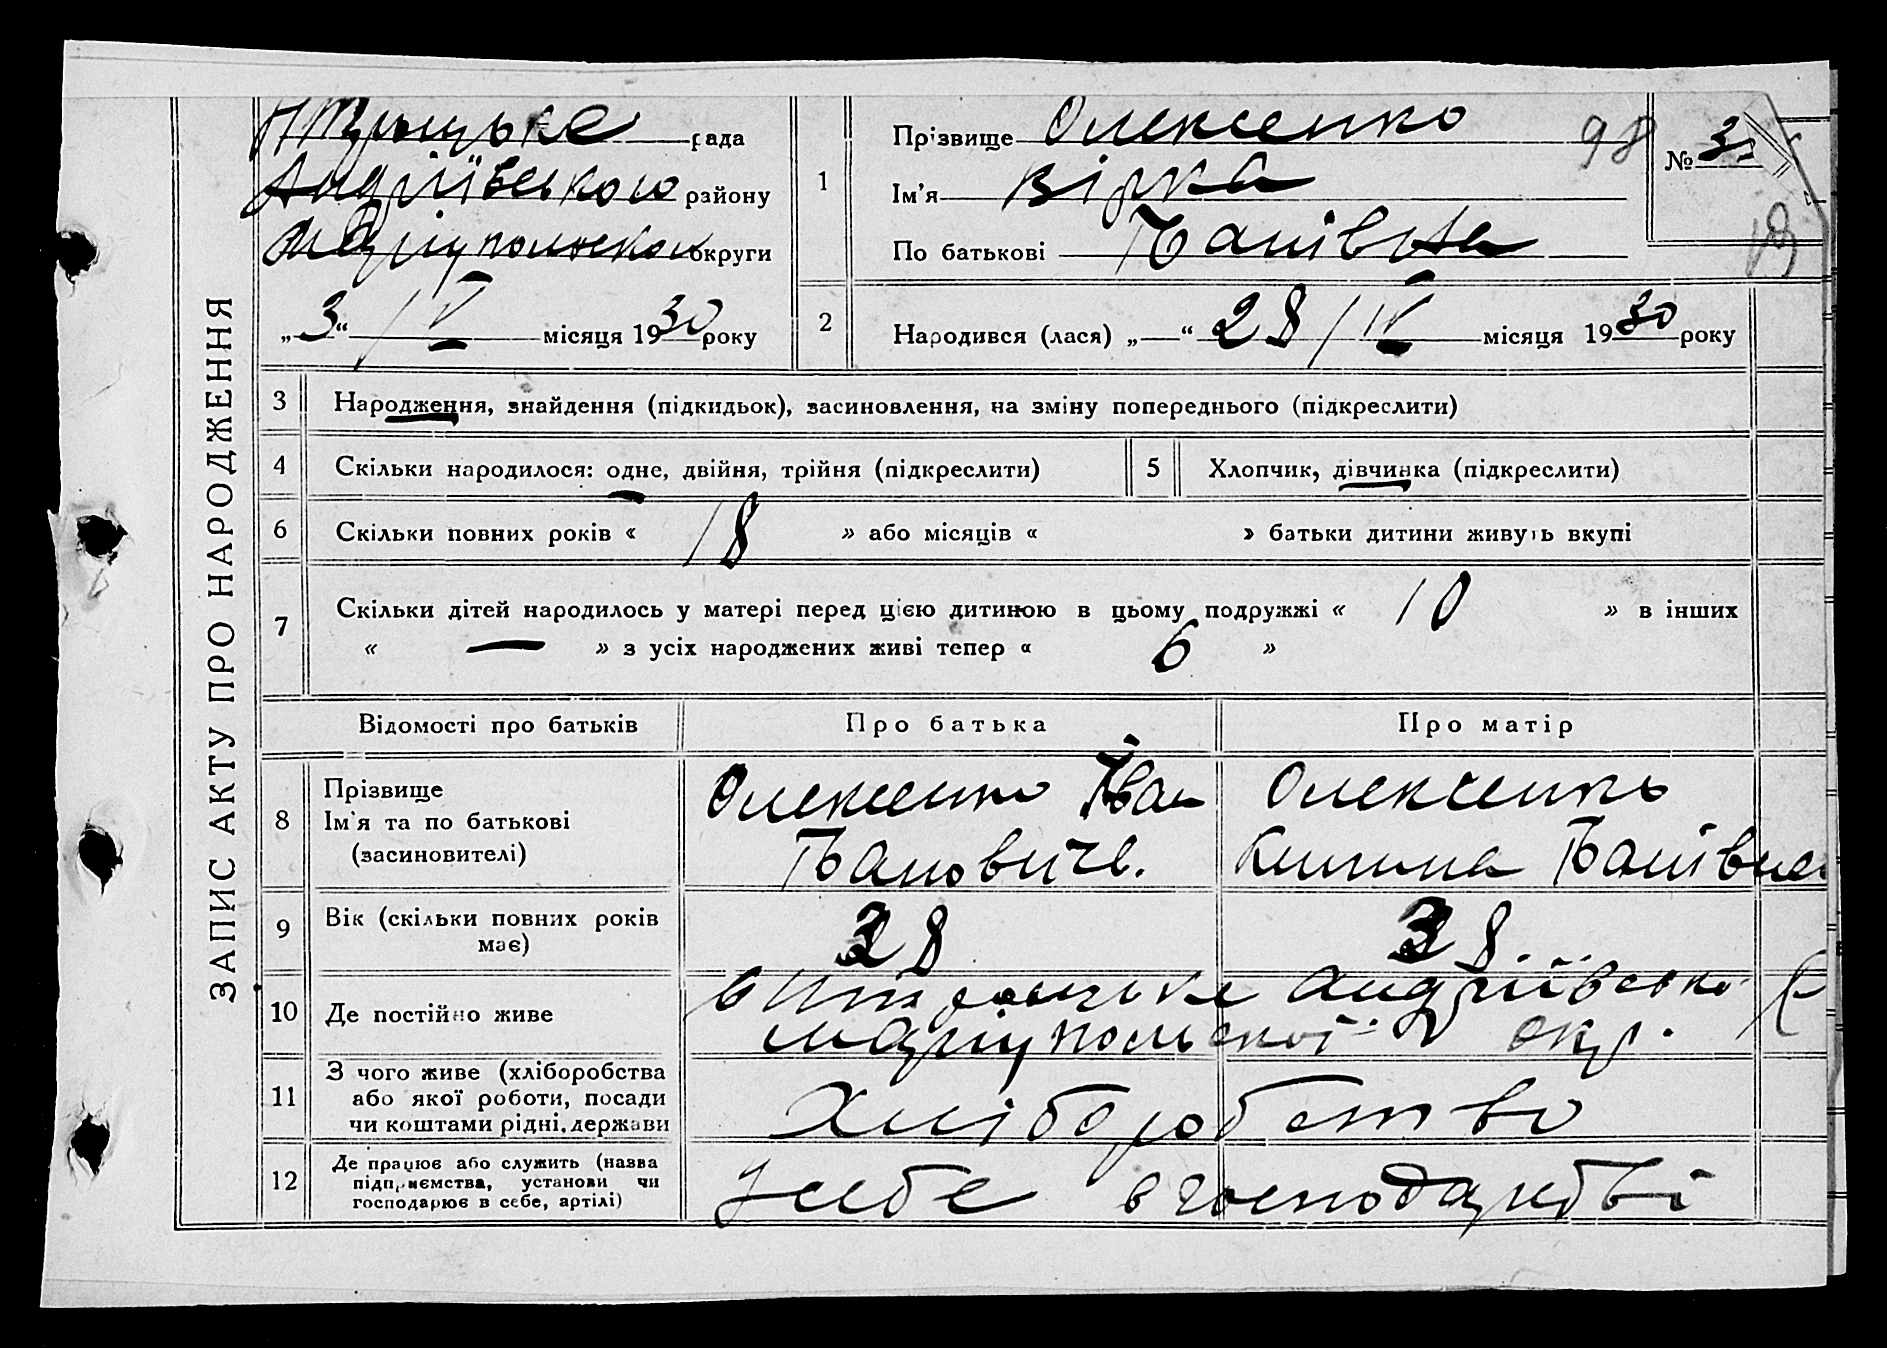 ЗАПИС АКТУ ПРО НАРОДЖЕННЯ
рада
Андріївського району
Маріупольскои округи
„3“ / V місяця 1930 року
1
Прізвище Олексенко
98
№ 3
Ім'я Вірка
По батькові Іванівна
2
Народився (лася) „ “ 28/IV місяця 1930 року
3 Народження, знайдення (підкидьок), засиновлення, на зміну попереднього (підкреслити)
4 Скільки народилося: одне, двійня, трійня (підкреслити) 5 Хлопчик, дівчинка (підкреслити)
6 Скільки повних років « 18 » або місяців « » батьки дитини живуть вкупі
7 Скільки дітей народилось у матері перед цією дитиною в цьому подружжі « 10 » в інших
« — » з усіх народжених живі тепер « 6 »
Відомості про батьків Про батька Про матір
8 Прізвище
Ім'я та по батькові
(засиновителі)
Олексенко Іван
Іванович
Олексенко
Іванівна
9 Вік (скільки повних років
має)
38 38
10 Де постійно живе
Андріївсько
Маріупольскої окр.
11 З чого живе (хліборобства
або якої роботи, посади
чи коштами рідні, держави
Хліборобство
12 Де працює або служить (назва
підприємства, установи чи
господарює в себе, артілі)
У себе в господарстві